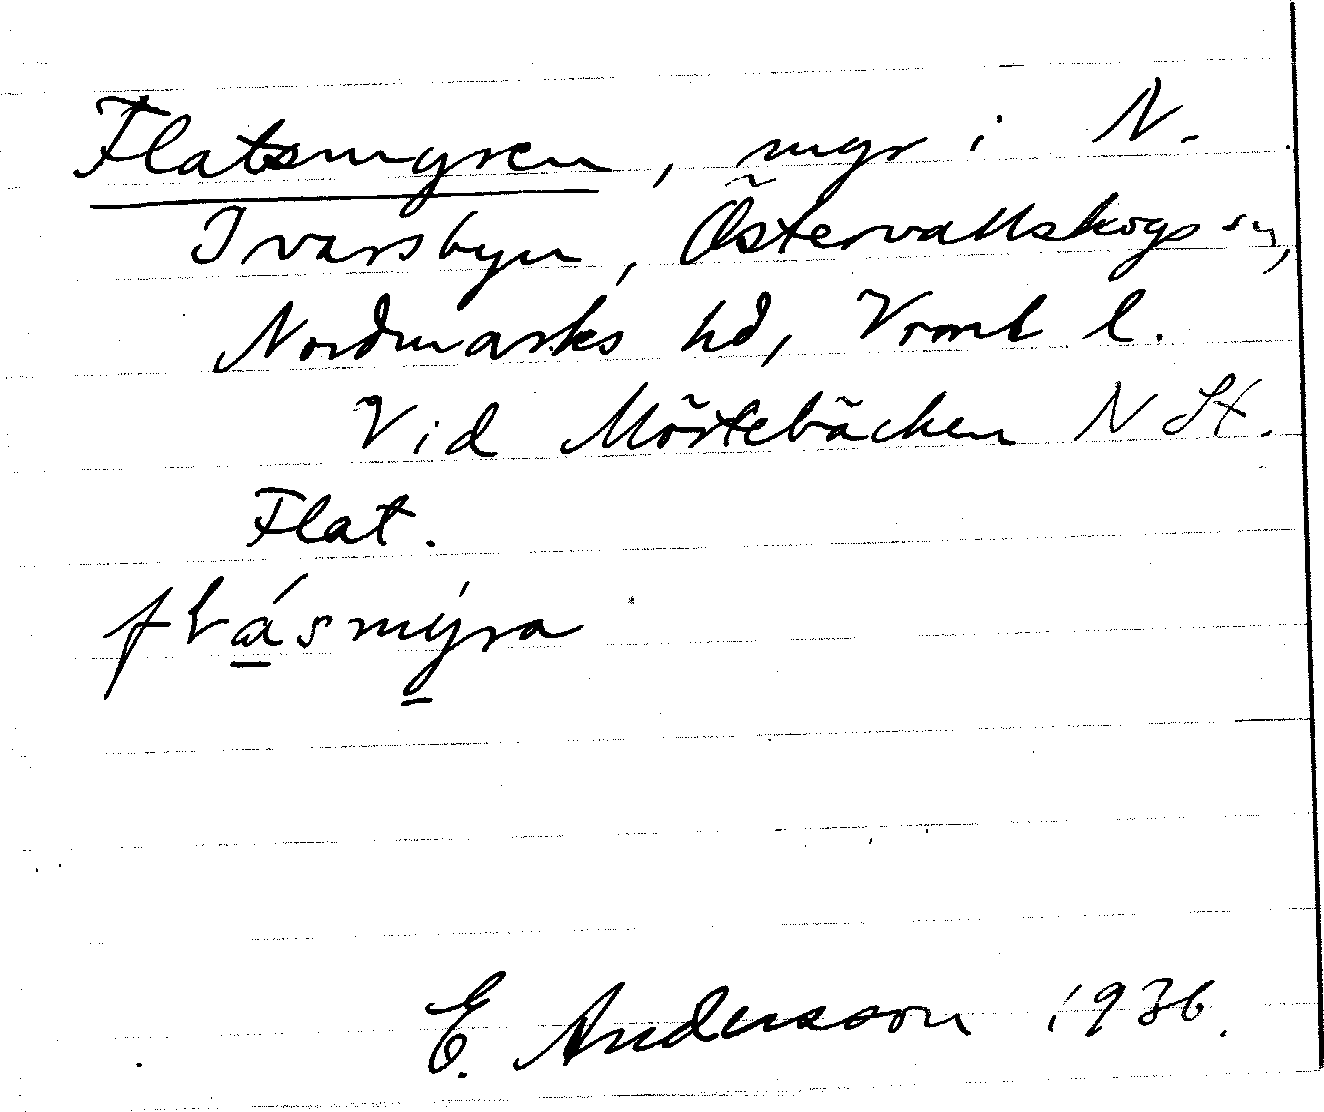 Flatsmyren, myr i N.
Ivarsbyn, Östervallskogs sn,
Nordmarks hd, Vrml l.
Vid Mörtebäcken N St.
Flat.
flásmýra
E. Andersson 1936.